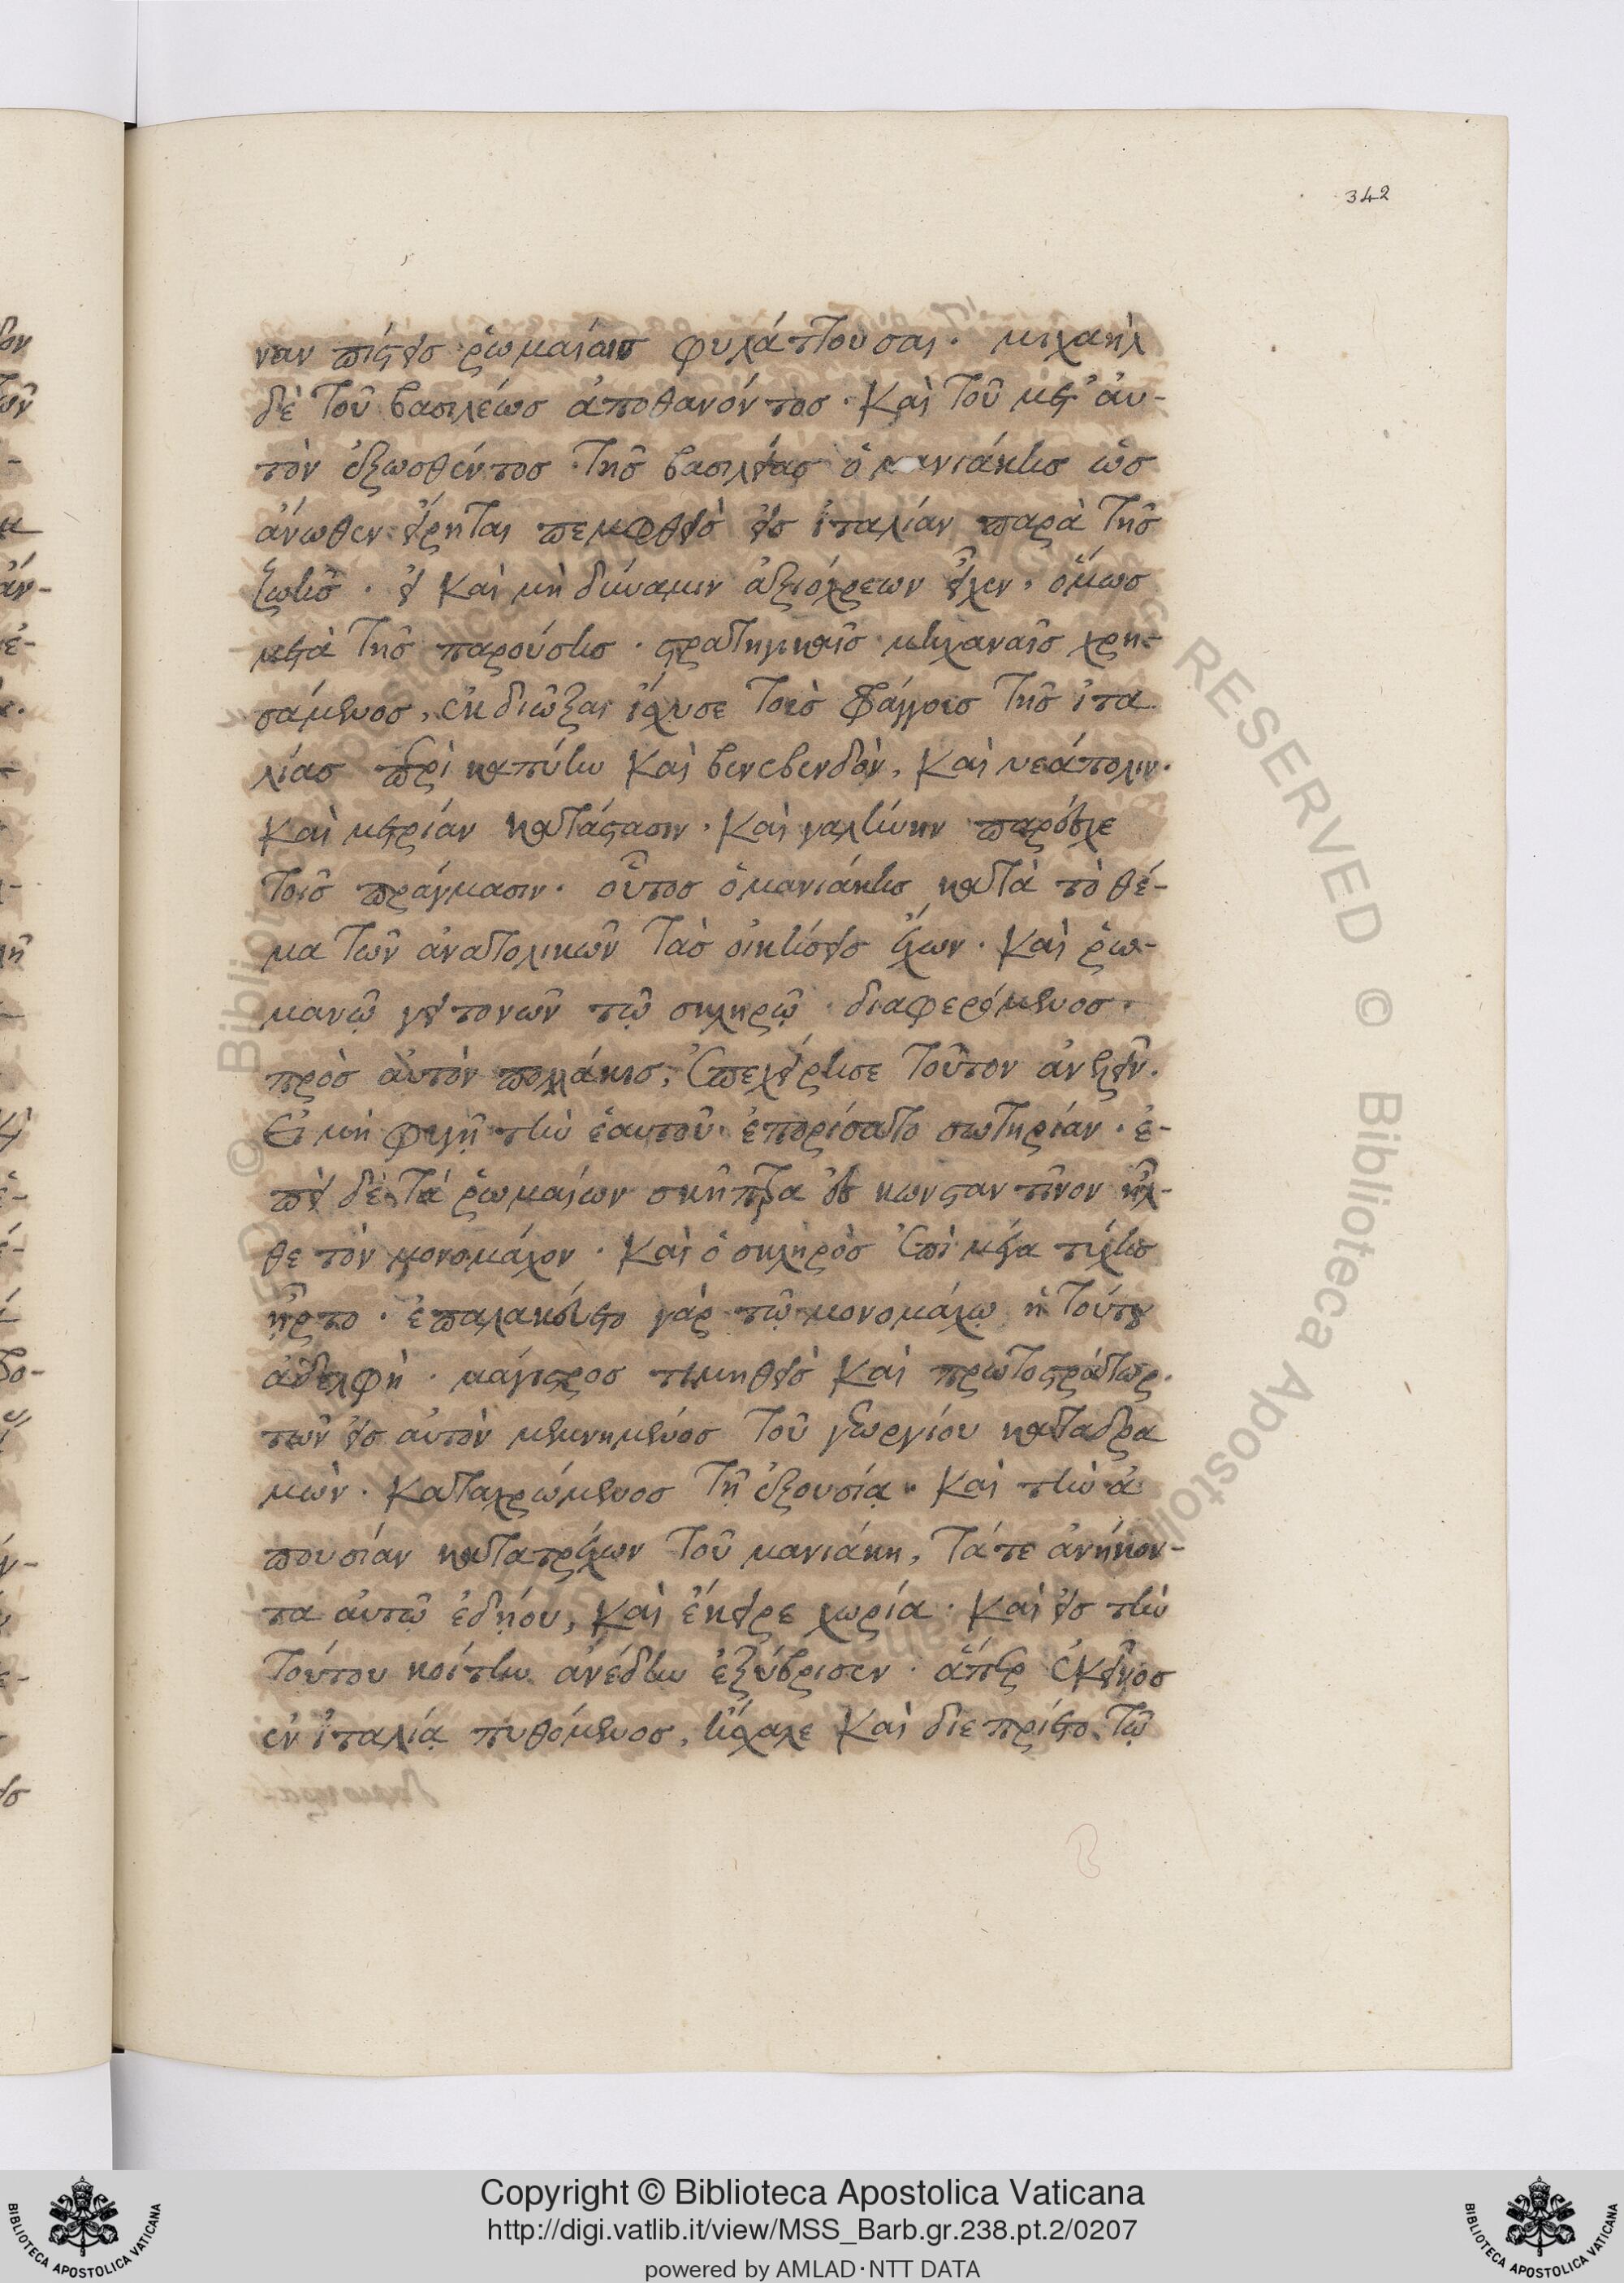 342
ναν πίστεισ ῥωμαίοισ φυλάττουσαι. μιχαὴλ
δὲ τοῦ βασιλέωσ ἀποθανόντοσ. καὶ τοῦ μετ' ἀυ-
τὸν ἐξωσθέντοσ τῆσ βασιλείασ ὁ μανιάκησ ὡσ
ἀνωθεν εἴρηται πεμφθεὶσ εἰσ ἰταλίαν παρὰ τῆσ
ζωῆσ. εἰ καὶ μὴ δύναμιν ἀξιόχρεων εἶχεν, ὅμωσ
μετὰ τῆσ παρούσησ. στρατηγικαῖσ μηχαναῖσ χρη-
σάμενοσ, ἐκδιῶξαι ἴσχυσε τοὺσ φράγγουσ τῆσ ἰτα
λίασ περὶ καπύην καὶ βενεβενδὸν, καὶ νεάπολιν.
καὶ μετρίαν κατάστασιν. καὶ γαλήνην παρέσχε
τοῖσ πράγμασιν. οὗτοσ ὁ μανιάκησ κατὰ τὸ θέ-
μα τῶν ἀνατολικῶν τὰσ οἰκήσεισ ἔχων. καὶ ῥω-
μανῷ γειτονῶν τῷ σκληρῷ. διαφερόμενοσ
πρὸσ ἀυτὸν πολλάκισ, ἐπεχείρησε τοῦτον ἀνελεῖν.
Ει μὴ φυγῇ τὴν ἑαυτοῦ ἐπορίσατο σωτηρίαν. ἐ-
πεὶ δὲ τὰ ῥωμαίων σκῆπτρα εἰσ κωνσταντῖνον ἦλ-
θε τὸν μονομάχον. καὶ ὁ σκληρὸσ ἐπὶ μέγα τύχησ
ἦρτο. ἐπαλακεύετο γὰρ τῷ μονομάχῳ ἡ τούτου
ἀδελφὴ. μάγιστροσ τιμηθεὶσ καὶ πρωτοστράτωρ.
τῶν εἰσ ἀυτὸν μεμνημένοσ τοῦ γεωργίου καταδρα
μῶν. καταχρώμενοσ τῇ ἐξουσίᾳ. καὶ τὴν ἀ
πουσίαν κατατρέχων τοῦ μανιάκη, τά τε ἀνήκον-
τα ἀυτῷ ἐδῄου, καὶ ἔκειρε χωρία. καὶ εἰσ τὴν
τούτου κοίτην ἀνέδην ἐξύβρισεν. ἅπερ ἐκεῖνοσ
ἐν ἰταλίᾳ πυθόμενοσ, ἤσχαλε καὶ διεπρίετο τῷ
Copyright © Biblioteca Apostolica Vaticana
http://digi.vatlib.it/view/MSS_Barb.gr.238.pt.2/0207
powered by AMLAD·NTT DATA